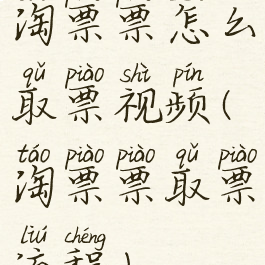 淘票票怎么
qǔ piào shì pín
取票视频(
táo piào piào qǔ piào
淘票票取票
liú chéng
流程)